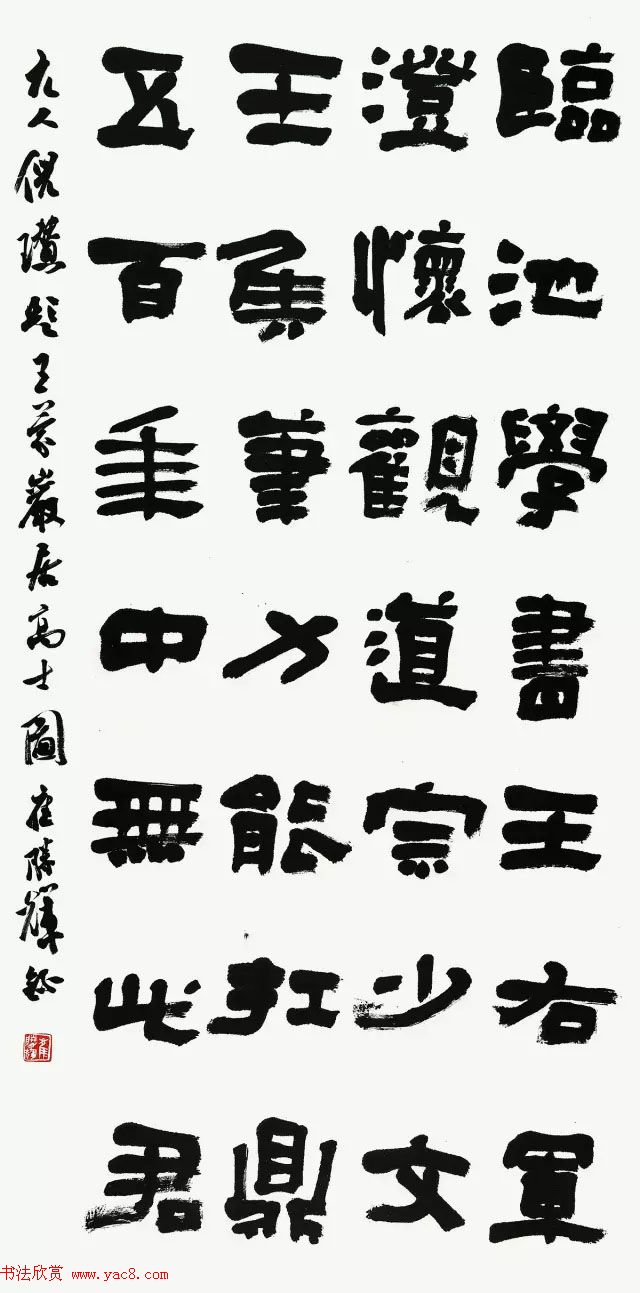 臨池學書王右軍
澄懷觀道宗少文
王侯筆力能扛鼎
五百年中無此君
元人倪瓚題王蒙巖居高士圖 崔勝輝錄
书法欣赏 www.yac8.com